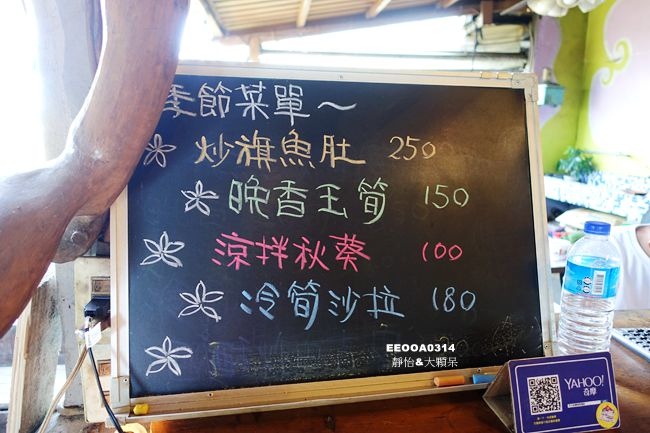 季節菜單～
炒旗魚肚 250
晚香玉筍 150
涼拌秋葵 100
冷筍沙拉 180
EEOOA0314
靜怡&大顆呆
YAHOO!
奇摩